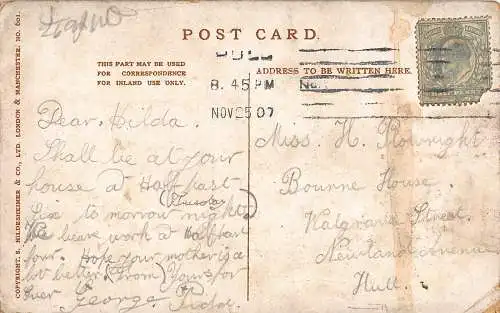 POST CARD.
THIS PART MAY BE USED
FOR CORRESPONDENCE
FOR INLAND USE ONLY.
ADDRESS TO BE WRITTEN HERE.
HULL
8.45 PM
NOV 25 07
COPYRIGHT. S. HILDESHEIMER & CO., LTD. LONDON & MANCHESTER. NO. 601.
Dear Hilda.
Shall be at your
house at Half past
Six to morrow night
(Tuesday)
We leave work at Half past
four. Hope your mother is a
bit better. (From) Yours for
Ever George
Miss H.
Bourne House
Street
Newland Avenue
Hull.